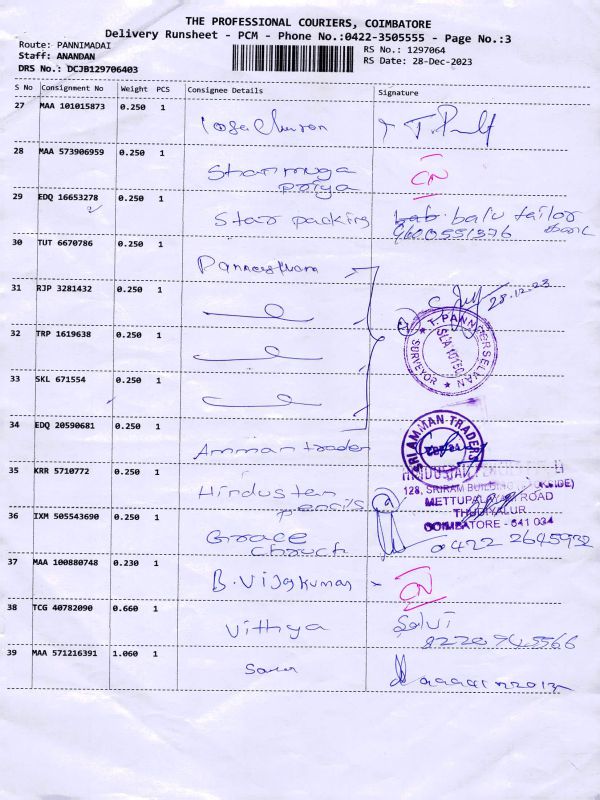 THE PROFESSIONAL COURIERS, COIMBATORE
Delivery Runsheet - PCM - Phone No.:0422-3505555 - Page No.:3
Route: PANNIMADAI
Staff: ANANDAN
DRS No.: DCJB129706403
RS No.: 1297064
RS Date: 28-Dec-2023
S No Consignment No Weight PCS Consignee Details Signature
27 MAA 101015873 0.250 1
28 MAA 573906959 0.250 1 Shanmuga
priya CN
29 EDQ 16653278 0.250 1 Star packing balu tailor
9600551376
30 TUT 6670786 0.250 1
31 RJP 3281432 0.250 1 28.12.23
32 TRP 1619638 0.250 1
T. PANNEERSELVAM
SURVEYOR
33 SKL 671554 0.250 1
34 EDQ 20590681 0.250 1 Amman traders
SRI AMMAN TRADERS
35 KRR 5710772 0.250 1 Hindustan
pencils
HINDUSTAN
128, SRIRAM BUILDING
METTUPALAYAM ROAD
THUDIYALUR
COIMBATORE - 641 034
36 IXM 505543690 0.250 1 Grace
Church 0422 2645932
37 MAA 100880748 0.230 1 B. Vijaykumar - CN
38 TCG 40782090 0.660 1 Vithya Selvi
39 MAA 571216391 1.060 1